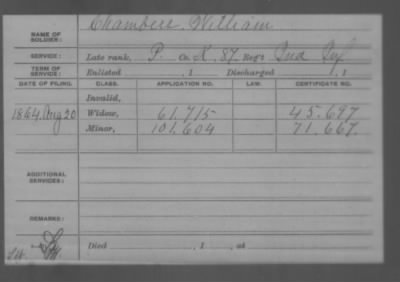 NAME OF SOLDIER: Chambers William
SERVICE: Late rank, P. Co K, 87. Reg't Ind Inf
TERM OF SERVICE: Enlisted , 1 Discharged , 1
DATE OF FILING. CLASS. APPLICATION NO. LAW. CERTIFICATE NO.
Invalid,
1864, Aug 20 Widow, 61.715 45.697
Minor, 101.604 71.667.
ADDITIONAL SERVICES:
REMARKS:
Died , 1 , at